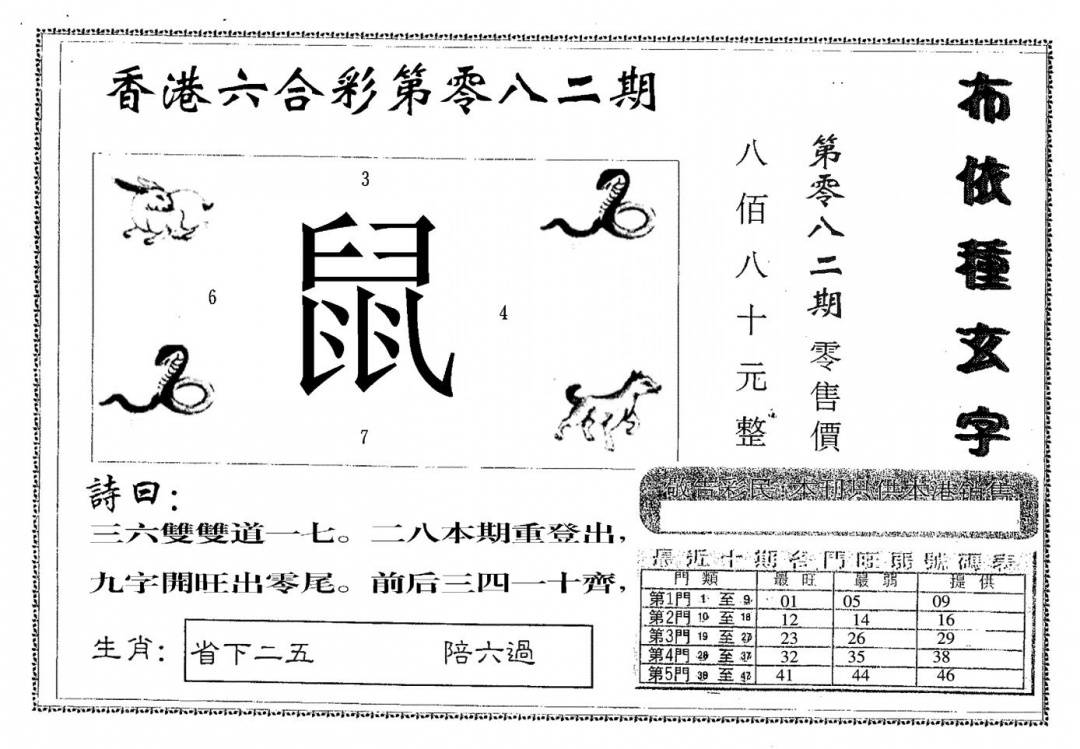 香港六合彩第零八二期
布依種玄字
第零八二期零售價
八佰八十元整
3
鼠
6
4
7
詩曰：
三六雙雙道一七。二八本期重登出，
九字開旺出零尾。前后三四一十齊，
生肖：省下二五 陪六過
敬告彩民：本刊只供本港銷售
最近十期各門旺弱號碼表
門類 最旺 最弱 提供
第1門 1 至 9 01 05 09
第2門 10 至 18 12 14 16
第3門 19 至 27 23 26 29
第4門 28 至 37 32 35 38
第5門 38 至 47 41 44 46